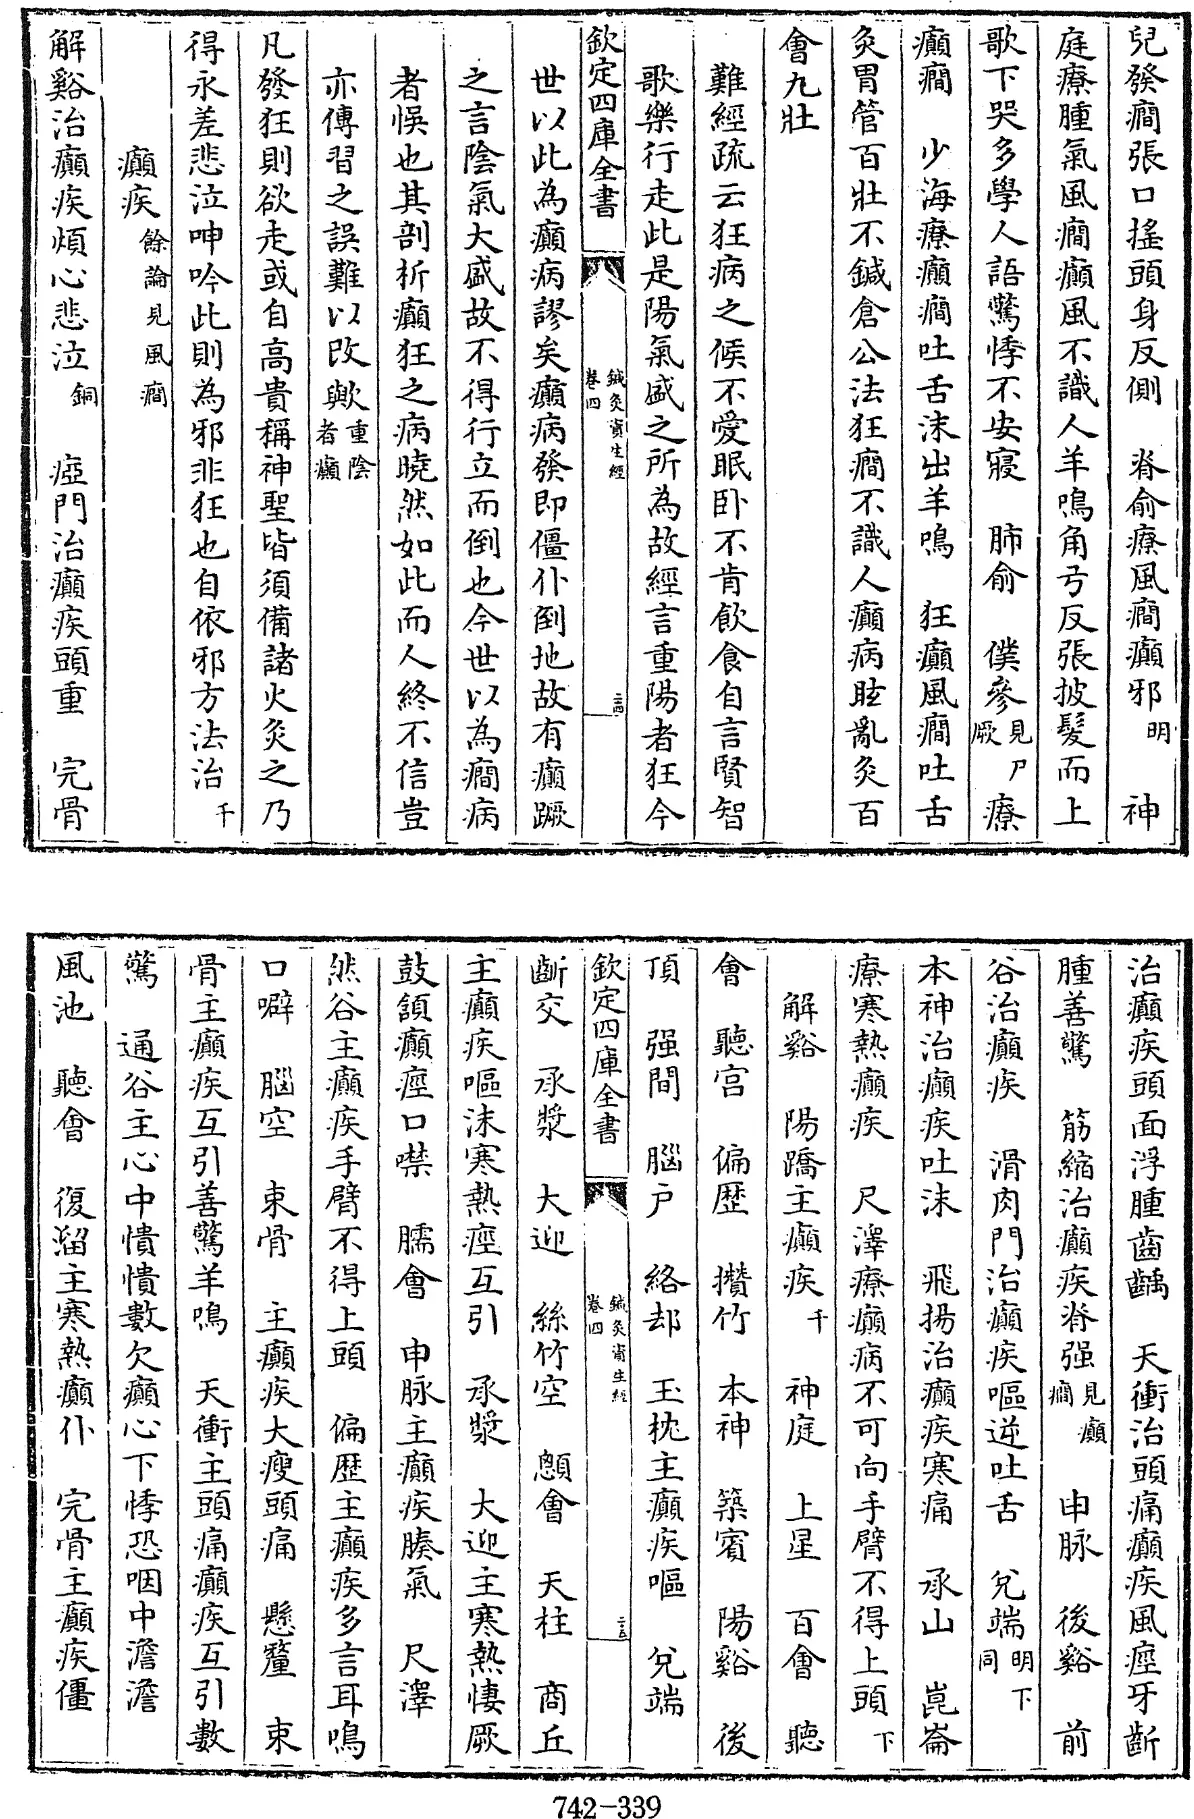 兒發癎張口搖頭身反側　脊俞療風癎癲邪明　神
庭療腫氣風癎癲風不識人羊鳴角弓反張披髮而上
歌下哭多學人語驚悸不安寢　肺俞　僕參見尸厥療
癲癎　少海療癲癎吐舌沫出羊鳴　狂癲風癎吐舌
灸胃管百壯不鍼倉公法狂癎不識人癲病眩亂灸百
會九壯
難經疏云狂病之候不愛眠卧不肯飲食自言賢智
歌樂行走此是陽氣盛之所為故經言重陽者狂今
欽定四庫全書　鍼灸資生經卷四　二四
世以此為癲病謬矣癲病發即僵仆倒地故有癲蹶
之言陰氣大盛故不得行立而倒也今世以為癎病
者悞也其剖析癲狂之病曉然如此而人終不信豈
亦傳習之誤難以改歟重陰者癲
凡發狂則欲走或自高貴稱神聖皆須備諸火灸之乃
得永差悲泣呻吟此則為邪非狂也自依邪方法治千
癲疾餘論見風癎
解谿治癲疾煩心悲泣銅　瘂門治癲疾頭重　完骨
治癲疾頭面浮腫齒齲　天衝治頭痛癲疾風痙牙齗
腫善驚　筋縮治癲疾脊强見癲癎　申脉　後谿　前
谷治癲疾　滑肉門治癲疾嘔逆吐舌　兌端明下同
本神治癲疾吐沫　飛揚治癲疾寒痛　承山　崑崙
療寒熱癲疾　尺澤療癲病不可向手臂不得上頭下
解谿　陽蹻主癲疾千　神庭　上星　百會　聽
會　聽宮　偏歷　攢竹　本神　築賓　陽谿　後
頂　强間　腦户　絡却　玉枕主癲疾嘔　兌端
欽定四庫全書　鍼灸資生經卷四　二五
齗交　承漿　大迎　絲竹空　顖會　天柱　商丘
主癲疾嘔沫寒熱痙互引　承漿　大迎主寒熱悽厥
鼓頷癲痙口噤　臑會　申脉主癲疾腠氣　尺澤
然谷主癲疾手臂不得上頭　偏歷主癲疾多言耳鳴
口噼　腦空　束骨　主癲疾大瘦頭痛　懸釐　束
骨主癲疾互引善驚羊鳴　天衝主頭痛癲疾互引數
驚　通谷主心中憒憒數欠癲心下悸恐咽中澹澹
風池　聽會　復溜主寒熱癲仆　完骨主癲疾僵
742-339